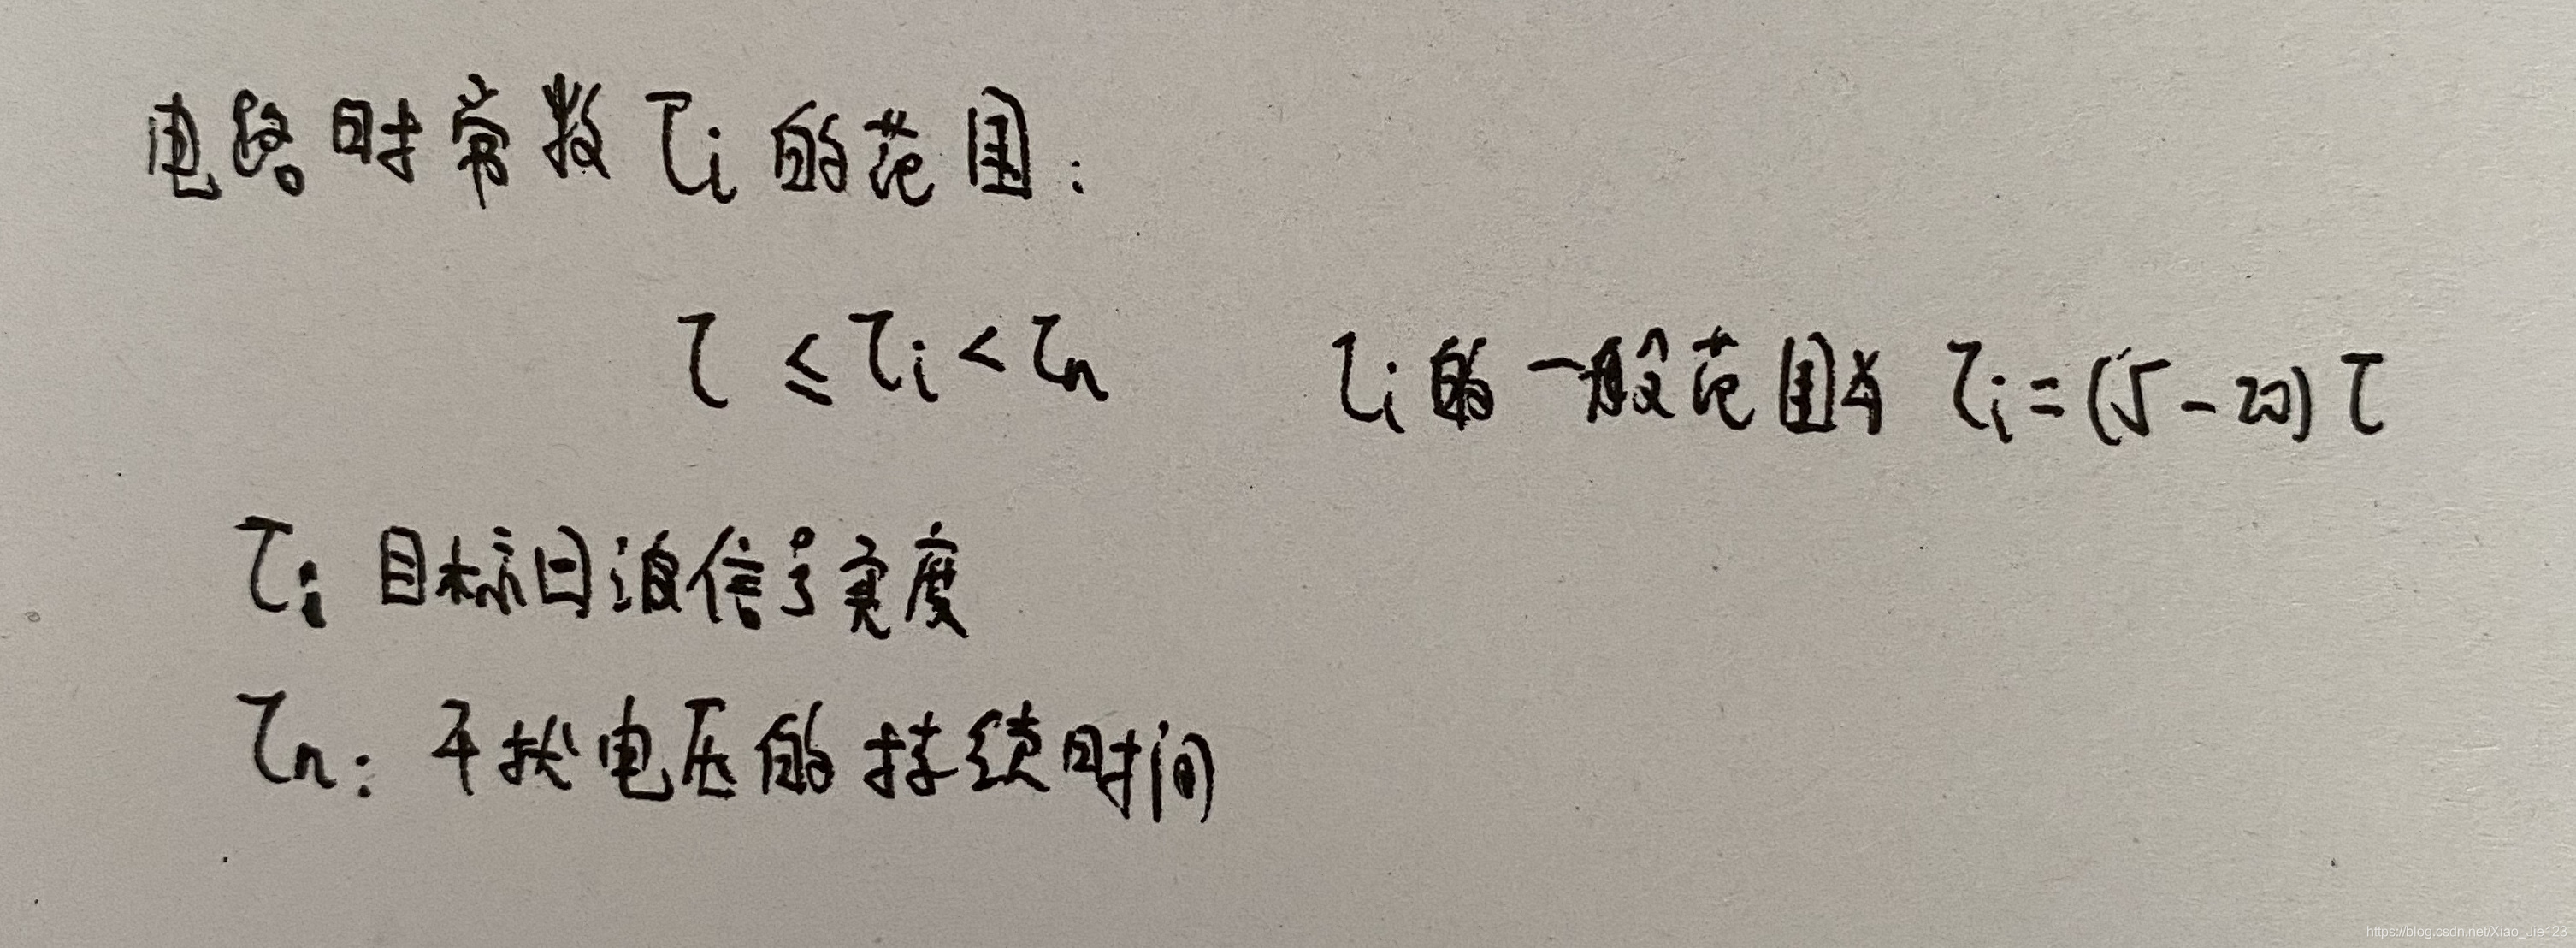 电路时常数 τi 的范围:
τ ≤ τi < τn τi 的一般范围为 τi = (5-20) τ
τ: 目标回波信号宽度
τn: 干扰电压的持续时间
https://blog.csdn.net/Xiao_Jie123